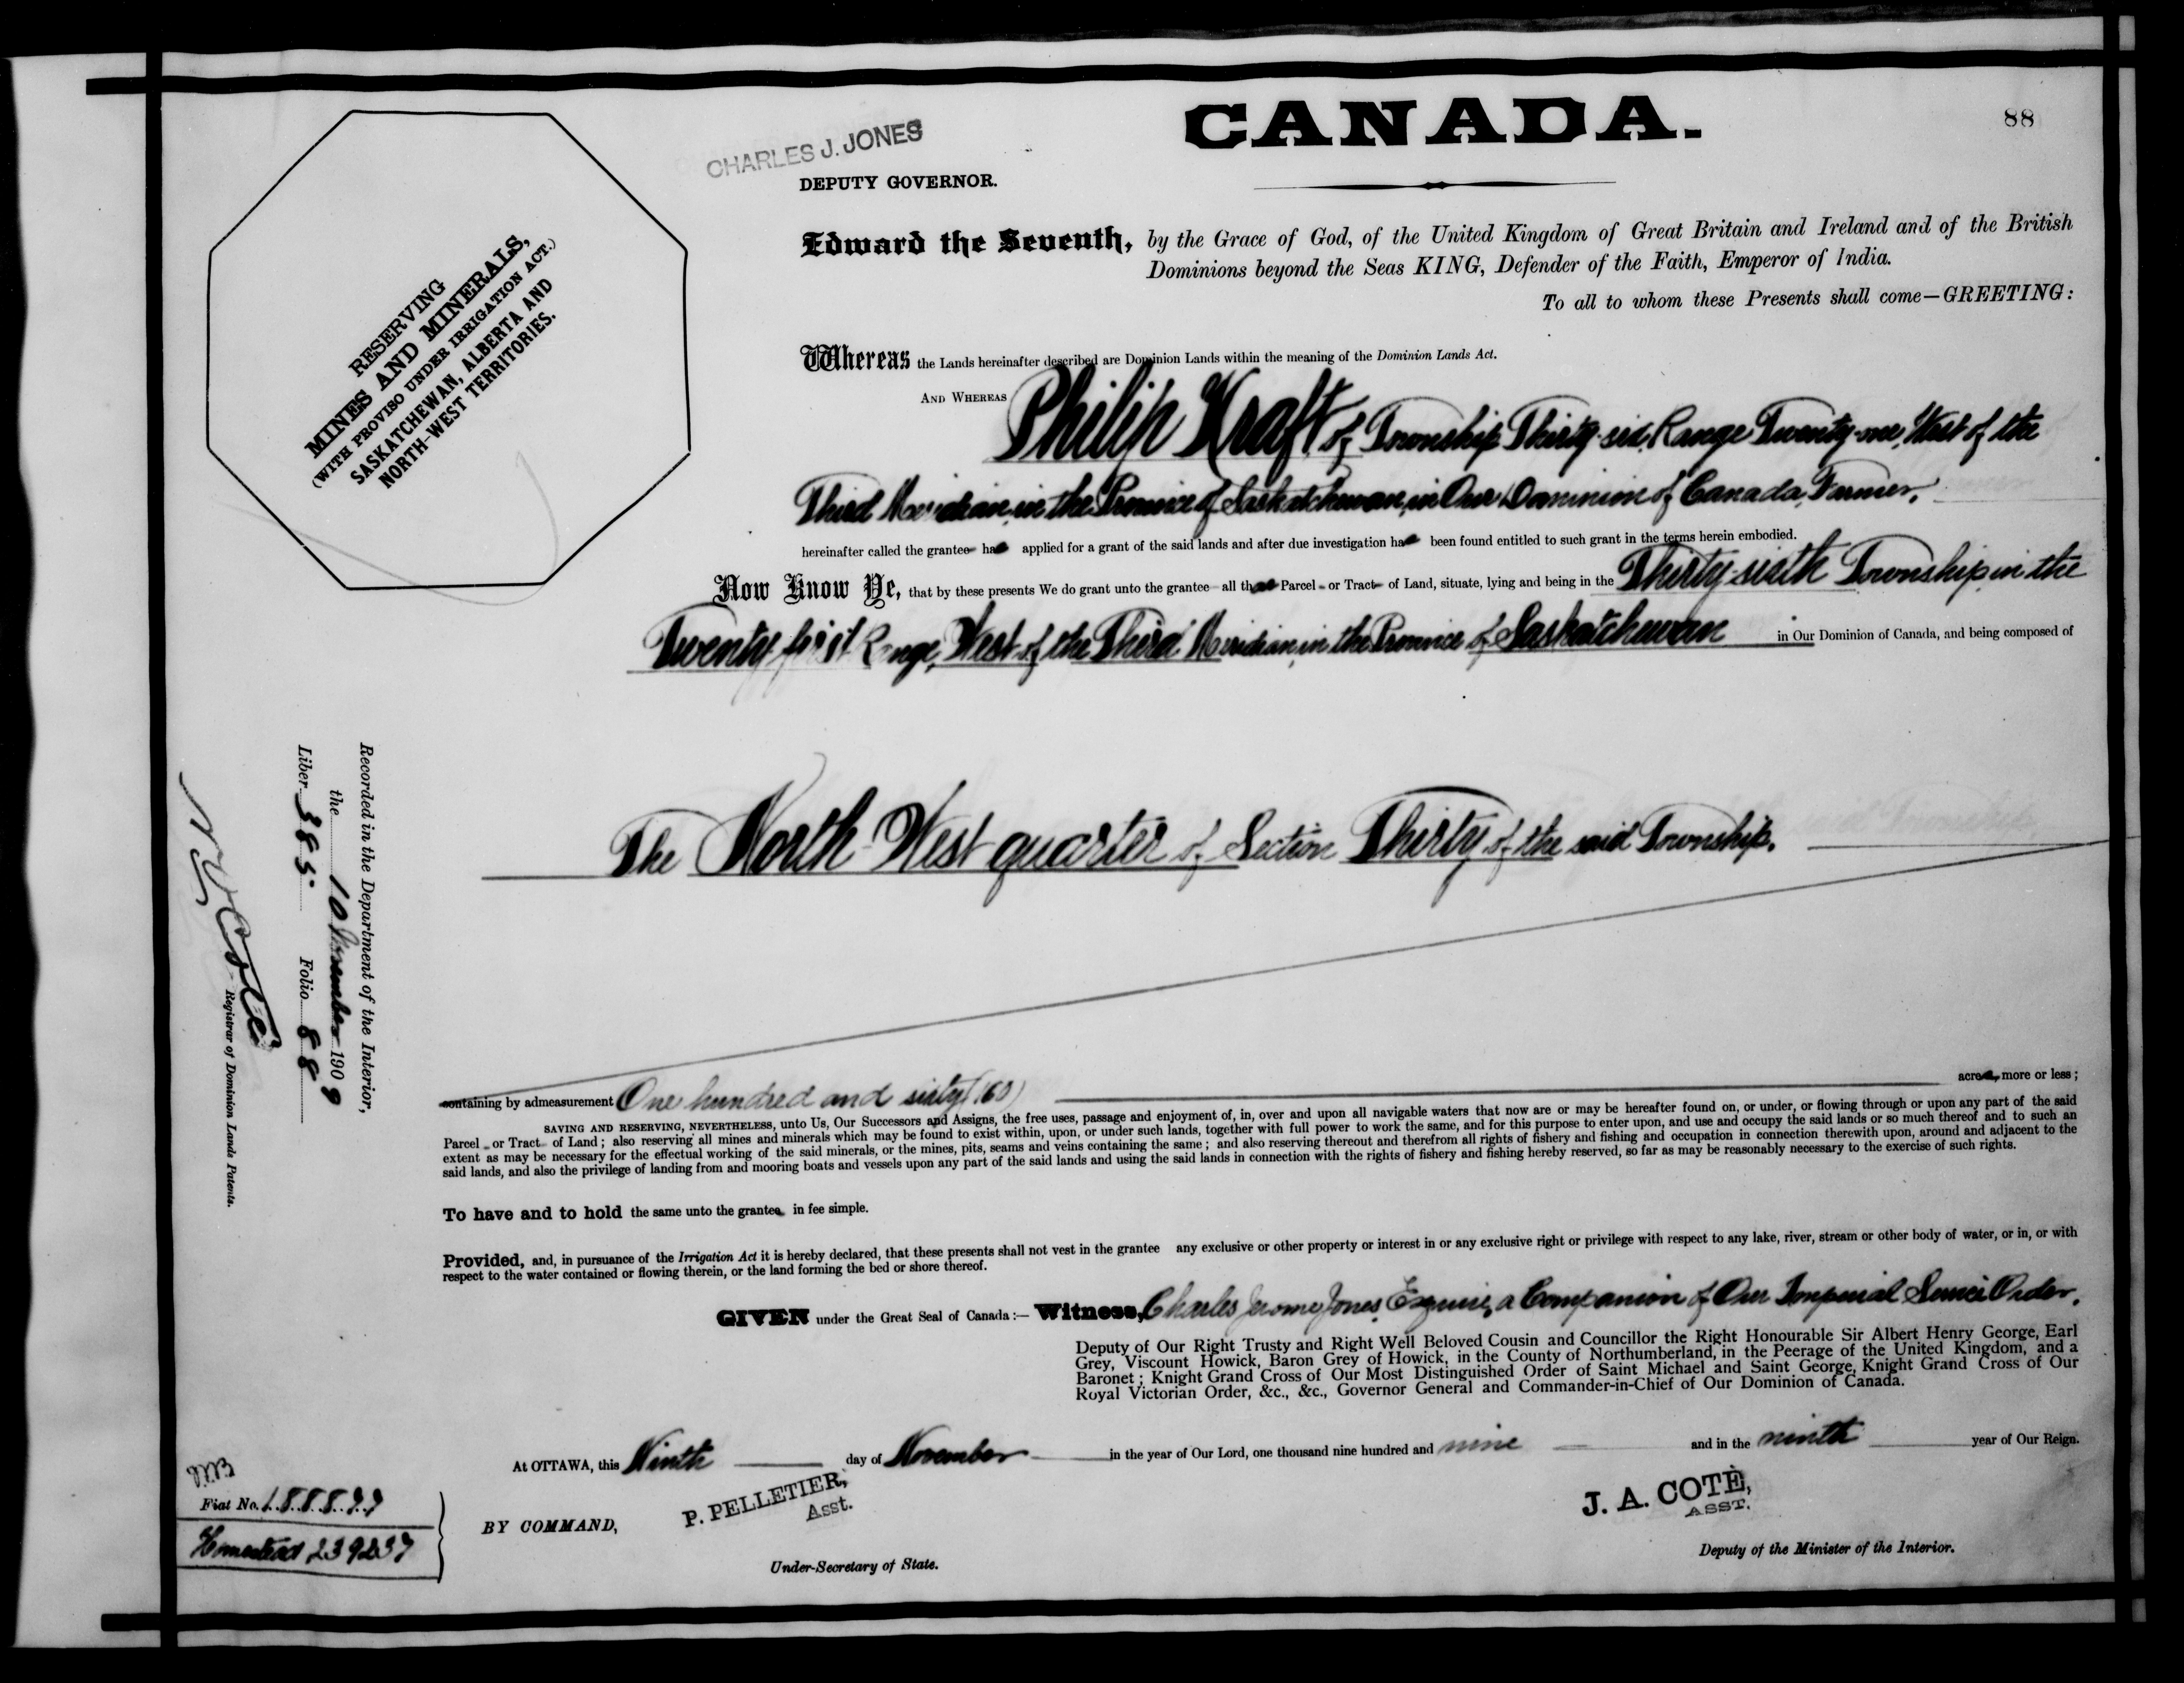 CANADA.
88
CHARLES J. JONES
DEPUTY GOVERNOR.
RESERVING
MINES AND MINERALS,
(WITH PROVISO UNDER IRRIGATION ACT.)
SASKATCHEWAN, ALBERTA AND
NORTH-WEST TERRITORIES.
Edward the Seventh, by the Grace of God, of the United Kingdom of Great Britain and Ireland and of the British
Dominions beyond the Seas KING, Defender of the Faith, Emperor of India.
To all to whom these Presents shall come—GREETING:
Whereas the Lands hereinafter described are Dominion Lands within the meaning of the Dominion Lands Act.
AND WHEREAS Philip Kraft of Township Thirty-six, Range Twenty-one, West of the
Third Meridian, in the Province of Saskatchewan, in Our Dominion of Canada, Farmer,
hereinafter called the grantee has applied for a grant of the said lands and after due investigation has been found entitled to such grant in the terms herein embodied.
Now Know Ye, that by these presents We do grant unto the grantee all that Parcel or Tract of Land, situate, lying and being in the Thirty-sixth Township, in the
Twenty first Range, West of the Third Meridian, in the Province of Saskatchewan in Our Dominion of Canada, and being composed of
The North-West quarter of Section Thirty of the said Township.
containing by admeasurement One hundred and sixty (160) acres, more or less;
SAVING AND RESERVING, NEVERTHELESS, unto Us, Our Successors and Assigns, the free uses, passage and enjoyment of, in, over and upon all navigable waters that now are or may be hereafter found on, or under, or flowing through or upon any part of the said
Parcel or Tract of Land; also reserving all mines and minerals which may be found to exist within, upon, or under such lands, together with full power to work the same, and for this purpose to enter upon, and use and occupy the said lands or so much thereof and to such an
extent as may be necessary for the effectual working of the said minerals, or the mines, pits, seams and veins containing the same; and also reserving thereout and therefrom all rights of fishery and fishing and occupation in connection therewith upon, around and adjacent to the
said lands, and also the privilege of landing from and mooring boats and vessels upon any part of the said lands and using the said lands in connection with the rights of fishery and fishing hereby reserved, so far as may be reasonably necessary to the exercise of such rights.
To have and to hold the same unto the grantee in fee simple.
Provided, and, in pursuance of the Irrigation Act it is hereby declared, that these presents shall not vest in the grantee any exclusive or other property or interest in or any exclusive right or privilege with respect to any lake, river, stream or other body of water, or in, or with
respect to the water contained or flowing therein, or the land forming the bed or shore thereof.
GIVEN under the Great Seal of Canada:— Witness, Charles Jerome Jones, Esquire, a Companion of Our Imperial Service Order,
Deputy of Our Right Trusty and Right Well Beloved Cousin and Councillor the Right Honourable Sir Albert Henry George, Earl
Grey, Viscount Howick, Baron Grey of Howick, in the County of Northumberland, in the Peerage of the United Kingdom, and a
Baronet; Knight Grand Cross of Our Most Distinguished Order of Saint Michael and Saint George, Knight Grand Cross of Our
Royal Victorian Order, &c., &c., Governor General and Commander-in-Chief of Our Dominion of Canada.
At OTTAWA, this Ninth day of November in the year of Our Lord, one thousand nine hundred and nine and in the ninth year of Our Reign.
P. PELLETIER,
Asst.
BY COMMAND,
Under-Secretary of State.
J. A. COTÉ,
ASST.
Deputy of the Minister of the Interior.
Recorded in the Department of the Interior,
the 10 November 1909
Liber 385. Folio 88
Registrar of Dominion Lands Patents.
Fiat No. 188899
Homestead 239237